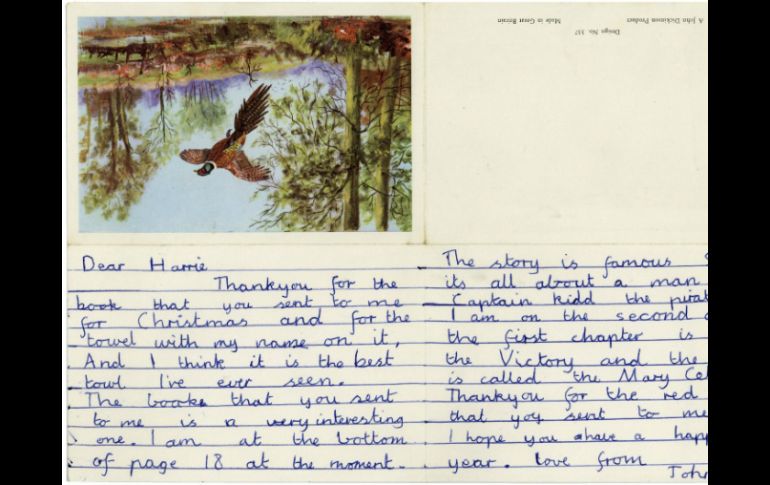 A John Dickinson Product
Made in Great Britain
Design No. 337
Dear Harrie
Thankyou for the
book that you sent to me
for Christmas and for the
towel with my name on it,
And I think it is the best
towl I've ever seen.
The book that you sent
to me is a very interesting
one. I am at the bottom
of page 18 at the moment.
The story is famous
its all about a man
Captain kidd the pirat
I am on the second
the first chapter is
the Victory and the
is called the Mary Cel
Thankyou for the red
that yoy sent to me
I hope you ahave a happ
year. love from
John